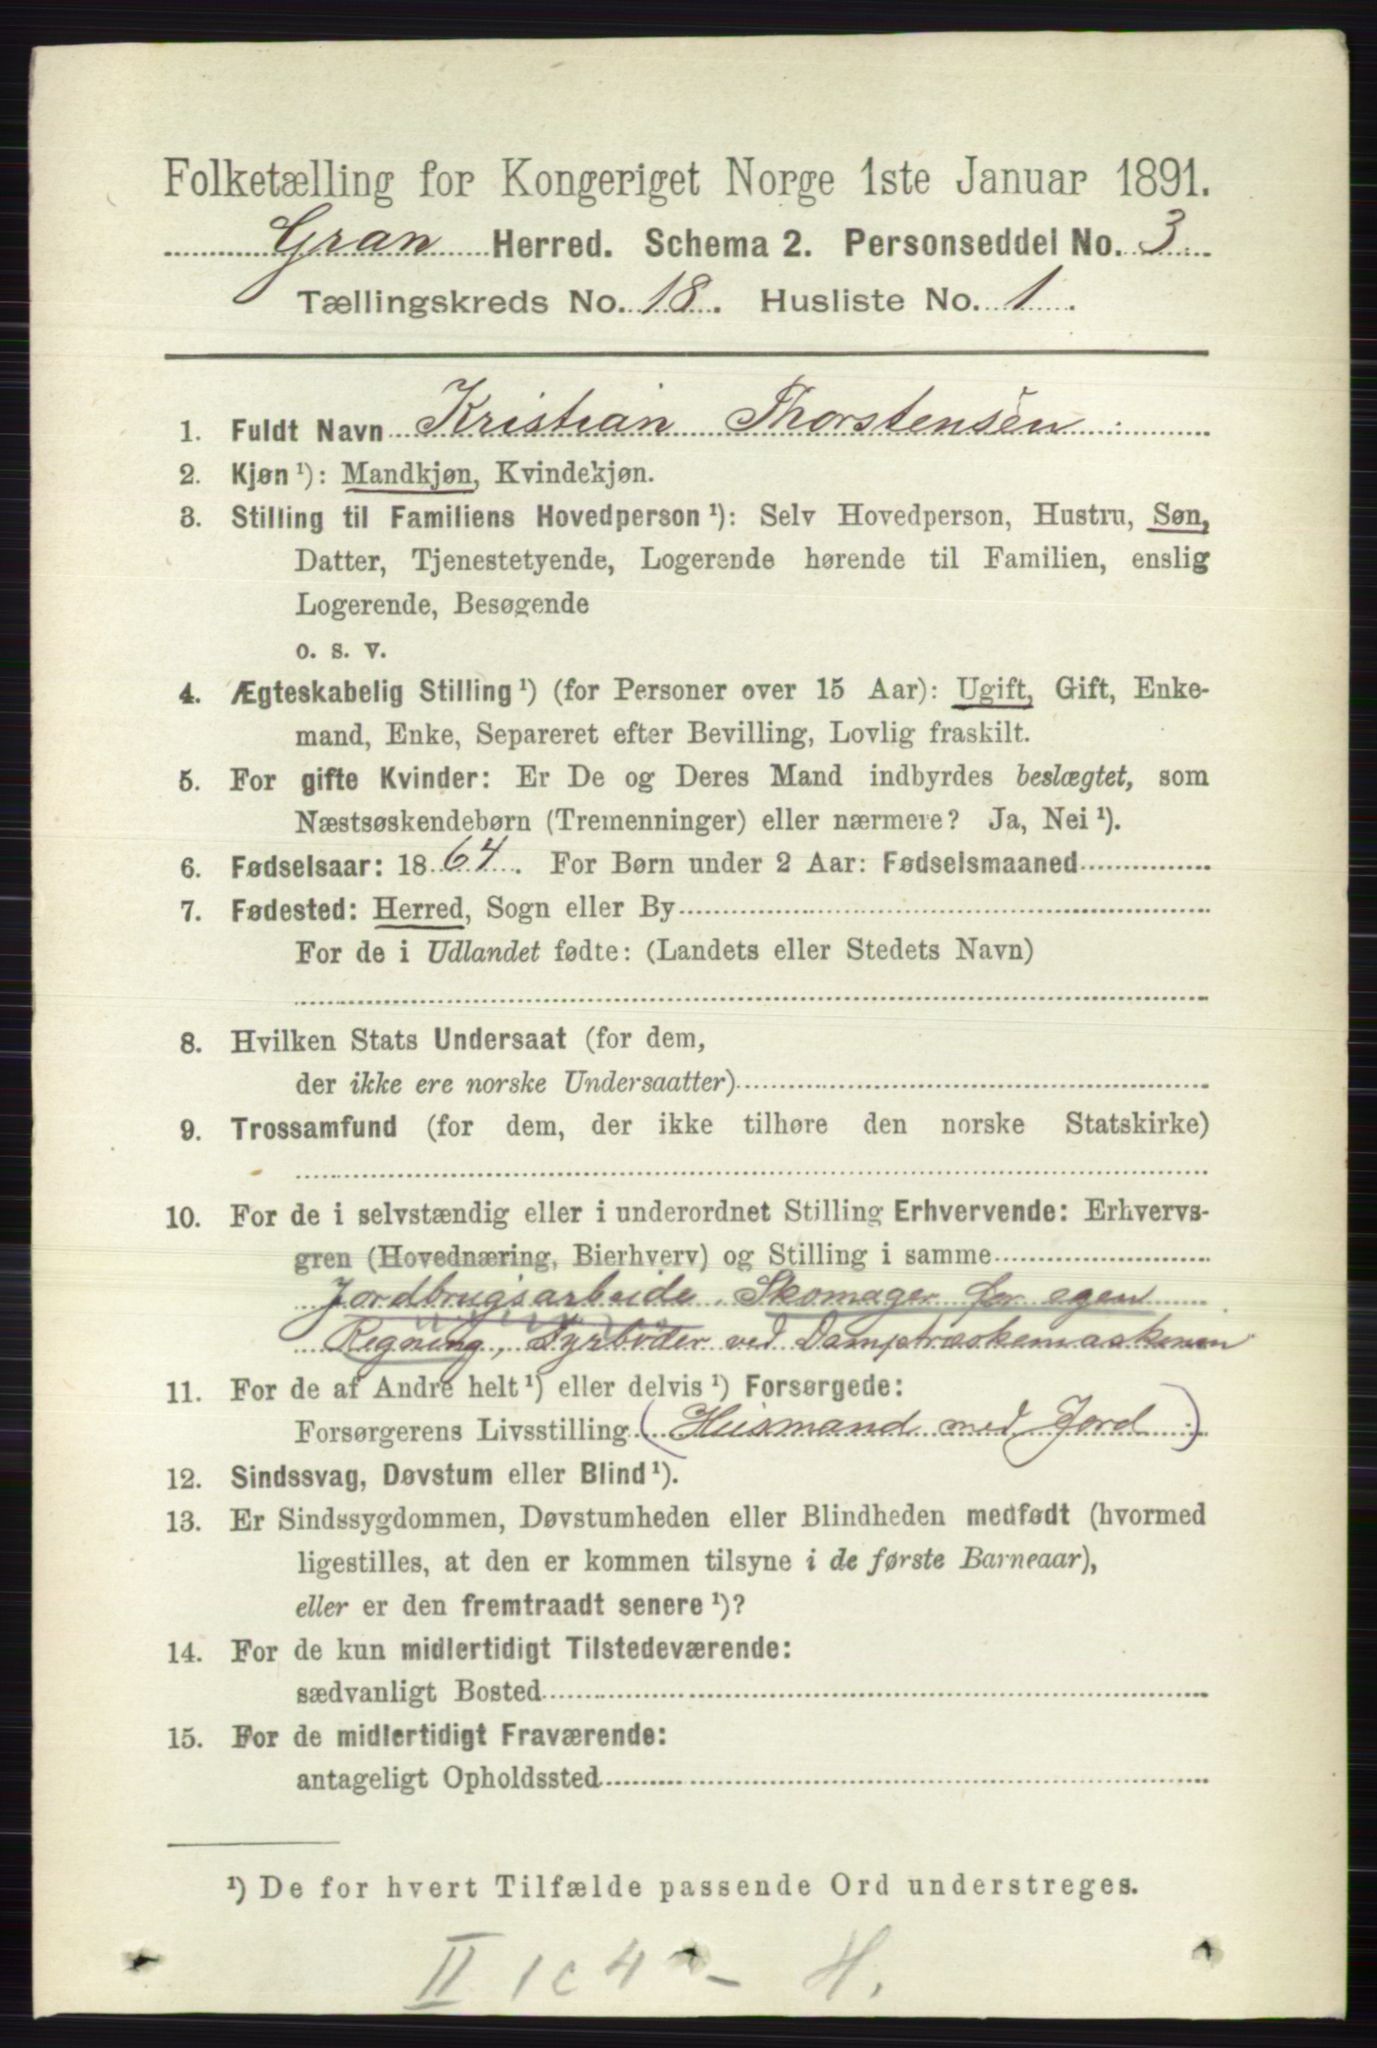 Folketælling for Kongeriget Norge 1ste Januar 1891.
Gran Herred. Schema 2. Personseddel No. 3.
Tællingskreds No. 18. Husliste No. 1.
1. Fuldt Navn Kristian Thorstensen
2. Kjøn¹): Mandkjøn, Kvindekjøn.
3. Stilling til Familiens Hovedperson¹): Selv Hovedperson, Hustru, Søn,
Datter, Tjenestetyende, Logerende hørende til Familien, enslig
Logerende, Besøgende
o. s. v.
4. Ægteskabelig Stilling¹) (for Personer over 15 Aar): Ugift, Gift, Enke-
mand, Enke, Separeret efter Bevilling, Lovlig fraskilt.
5. For gifte Kvinder: Er De og Deres Mand indbyrdes beslægtet, som
Næstsøskendebørn (Tremenninger) eller nærmere? Ja, Nei¹).
6. Fødselsaar: 1864. For Børn under 2 Aar: Fødselsmaaned
7. Fødested: Herred, Sogn eller By
For de i Udlandet fødte: (Landets eller Stedets Navn)
8. Hvilken Stats Undersaat (for dem,
der ikke ere norske Undersaatter)
9. Trossamfund (for dem, der ikke tilhøre den norske Statskirke)
10. For de i selvstændig eller i underordnet Stilling Erhvervende: Erhvervs-
gren (Hovednæring, Bierhverv) og Stilling i samme
Jordbrugsarbeide, Skomager for egen
Regning, Fyrbøder ved Damptræskemaskinen
11. For de af Andre helt¹) eller delvis¹) Forsørgede:
Forsørgerens Livsstilling (Husmand med Jord)
12. Sindssvag, Døvstum eller Blind¹).
13. Er Sindssygdommen, Døvstumheden eller Blindheden medfødt (hvormed
ligestilles, at den er kommen tilsyne i de første Barneaar),
eller er den fremtraadt senere¹)?
14. For de kun midlertidigt Tilstedeværende:
sædvanligt Bosted
15. For de midlertidigt Fraværende:
antageligt Opholdssted
¹) De for hvert Tilfælde passende Ord understreges.
II 1c 4 - H.